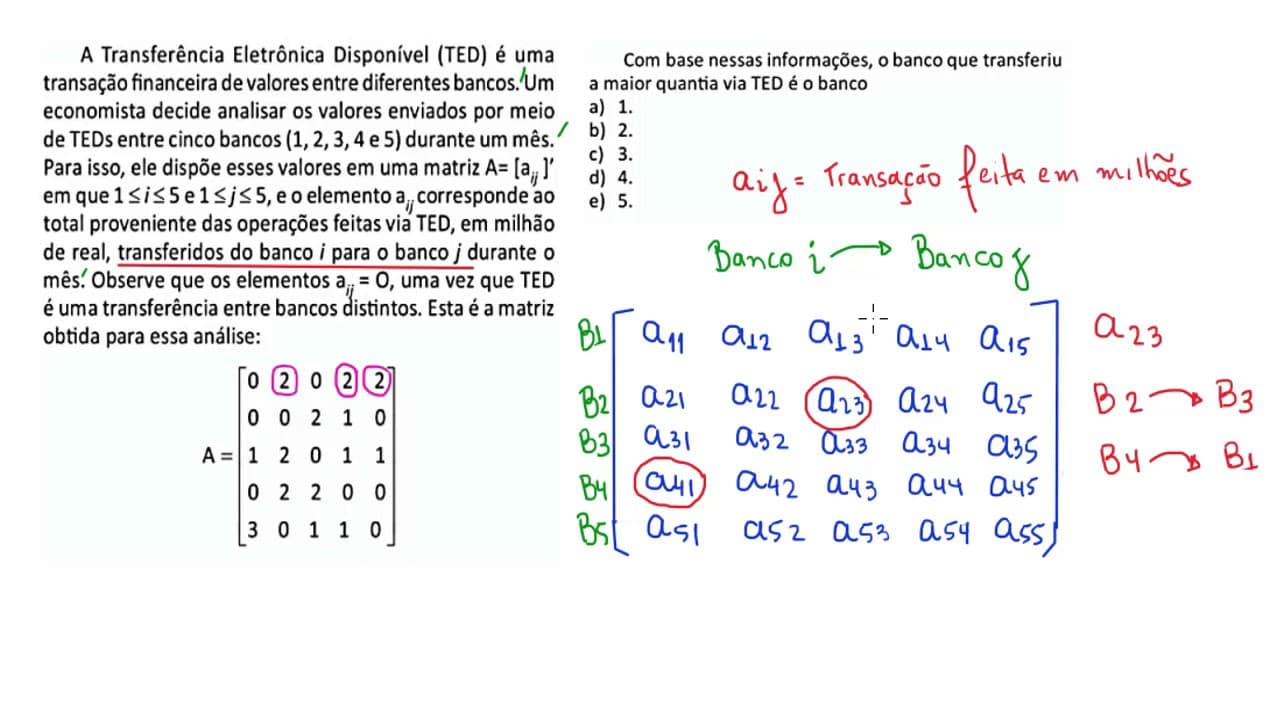 A Transferência Eletrônica Disponível (TED) é uma
transação financeira de valores entre diferentes bancos. Um
economista decide analisar os valores enviados por meio
de TEDs entre cinco bancos (1, 2, 3, 4 e 5) durante um mês.
Para isso, ele dispõe esses valores em uma matriz A= [aij ]'
em que 1 ≤ i ≤ 5 e 1 ≤ j ≤ 5, e o elemento aij corresponde ao
total proveniente das operações feitas via TED, em milhão
de real, transferidos do banco i para o banco j durante o
mês. Observe que os elementos aij = O, uma vez que TED
é uma transferência entre bancos distintos. Esta é a matriz
obtida para essa análise:
0 2 0 2 2
0 0 2 1 0
A = 1 2 0 1 1
0 2 2 0 0
3 0 1 1 0
Com base nessas informações, o banco que transferiu
a maior quantia via TED é o banco
a) 1.
b) 2.
c) 3.
d) 4.
e) 5.
aij = Transação feita em milhões
Banco i → Banco j
B1 a11 a12 a13 a14 a15
B2 a21 a22 a23 a24 a25
B3 a31 a32 a33 a34 a35
B4 a41 a42 a43 a44 a45
B5 a51 a52 a53 a54 a55
a23
B2 → B3
B4 → B1